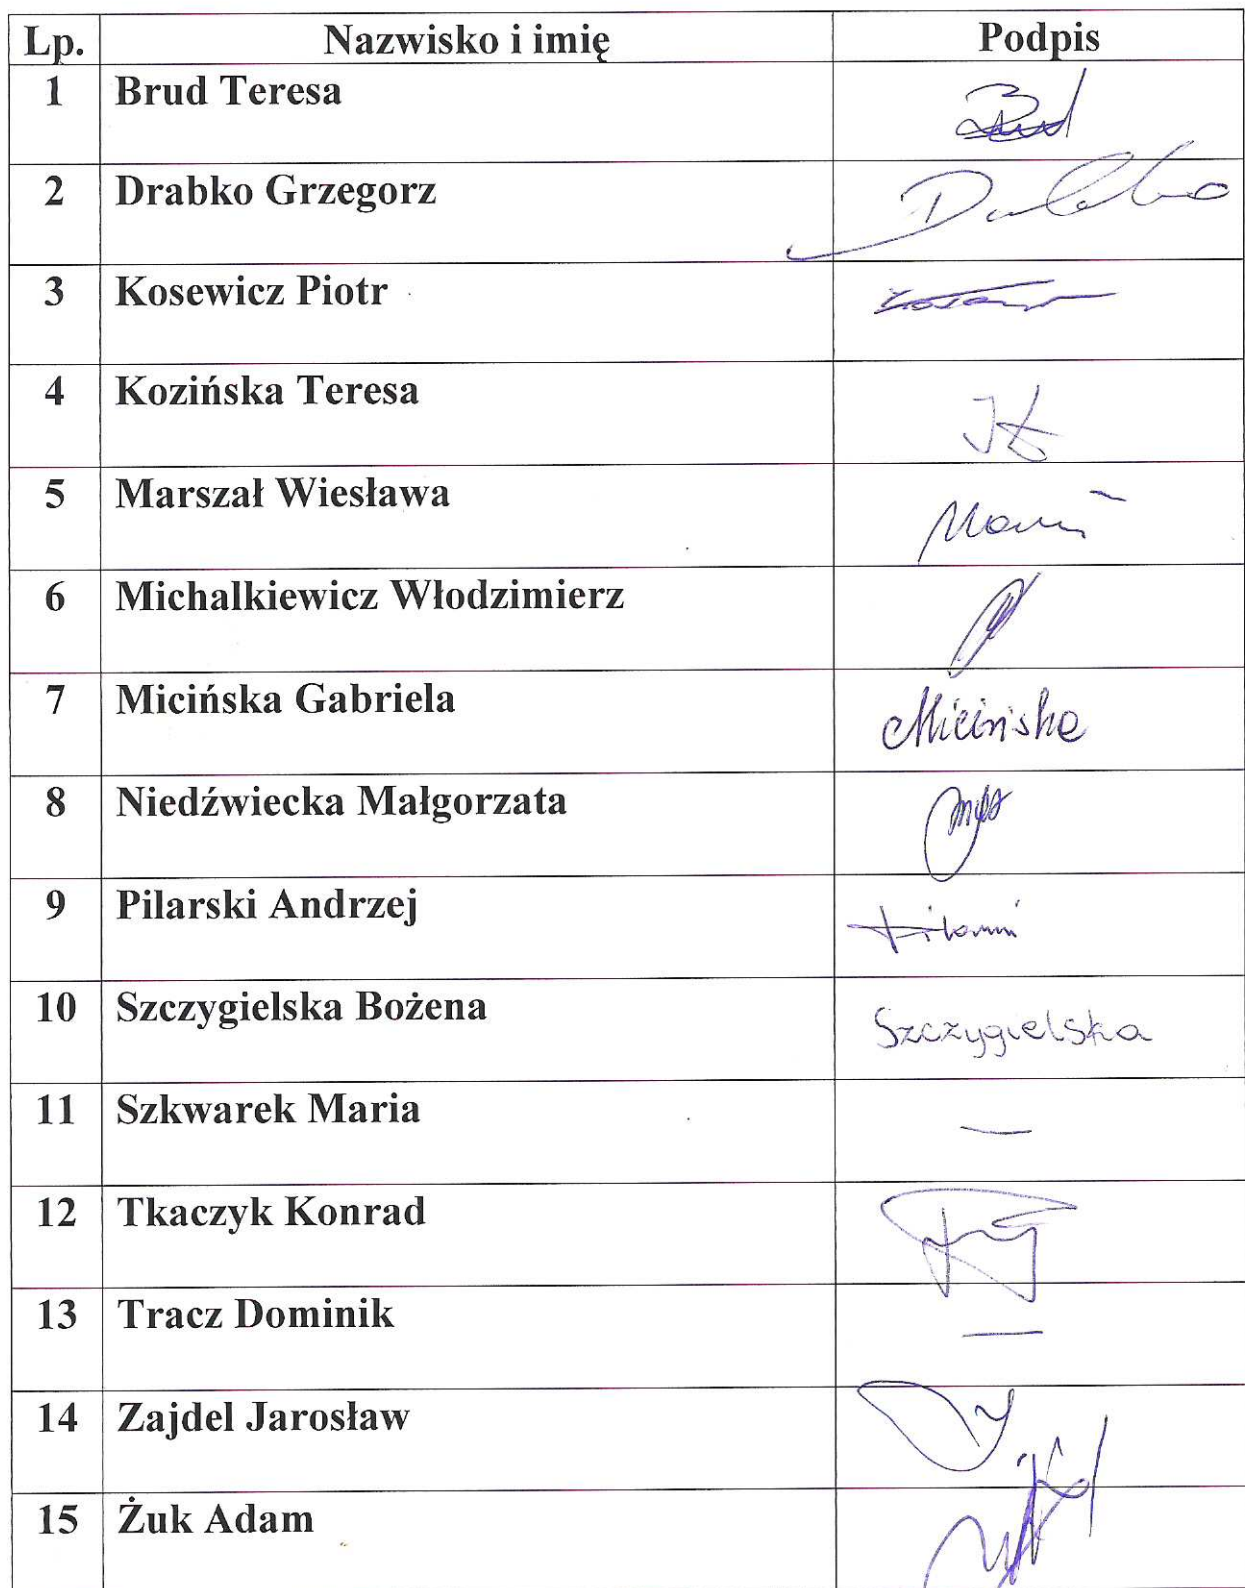 Lp. Nazwisko i imię Podpis
1 Brud Teresa Brud
2 Drabko Grzegorz
3 Kosewicz Piotr
4 Kozińska Teresa
5 Marszał Wiesława
6 Michalkiewicz Włodzimierz
7 Micińska Gabriela Micińska
8 Niedźwiecka Małgorzata
9 Pilarski Andrzej
10 Szczygielska Bożena Szczygielska
11 Szkwarek Maria —
12 Tkaczyk Konrad
13 Tracz Dominik —
14 Zajdel Jarosław
15 Żuk Adam